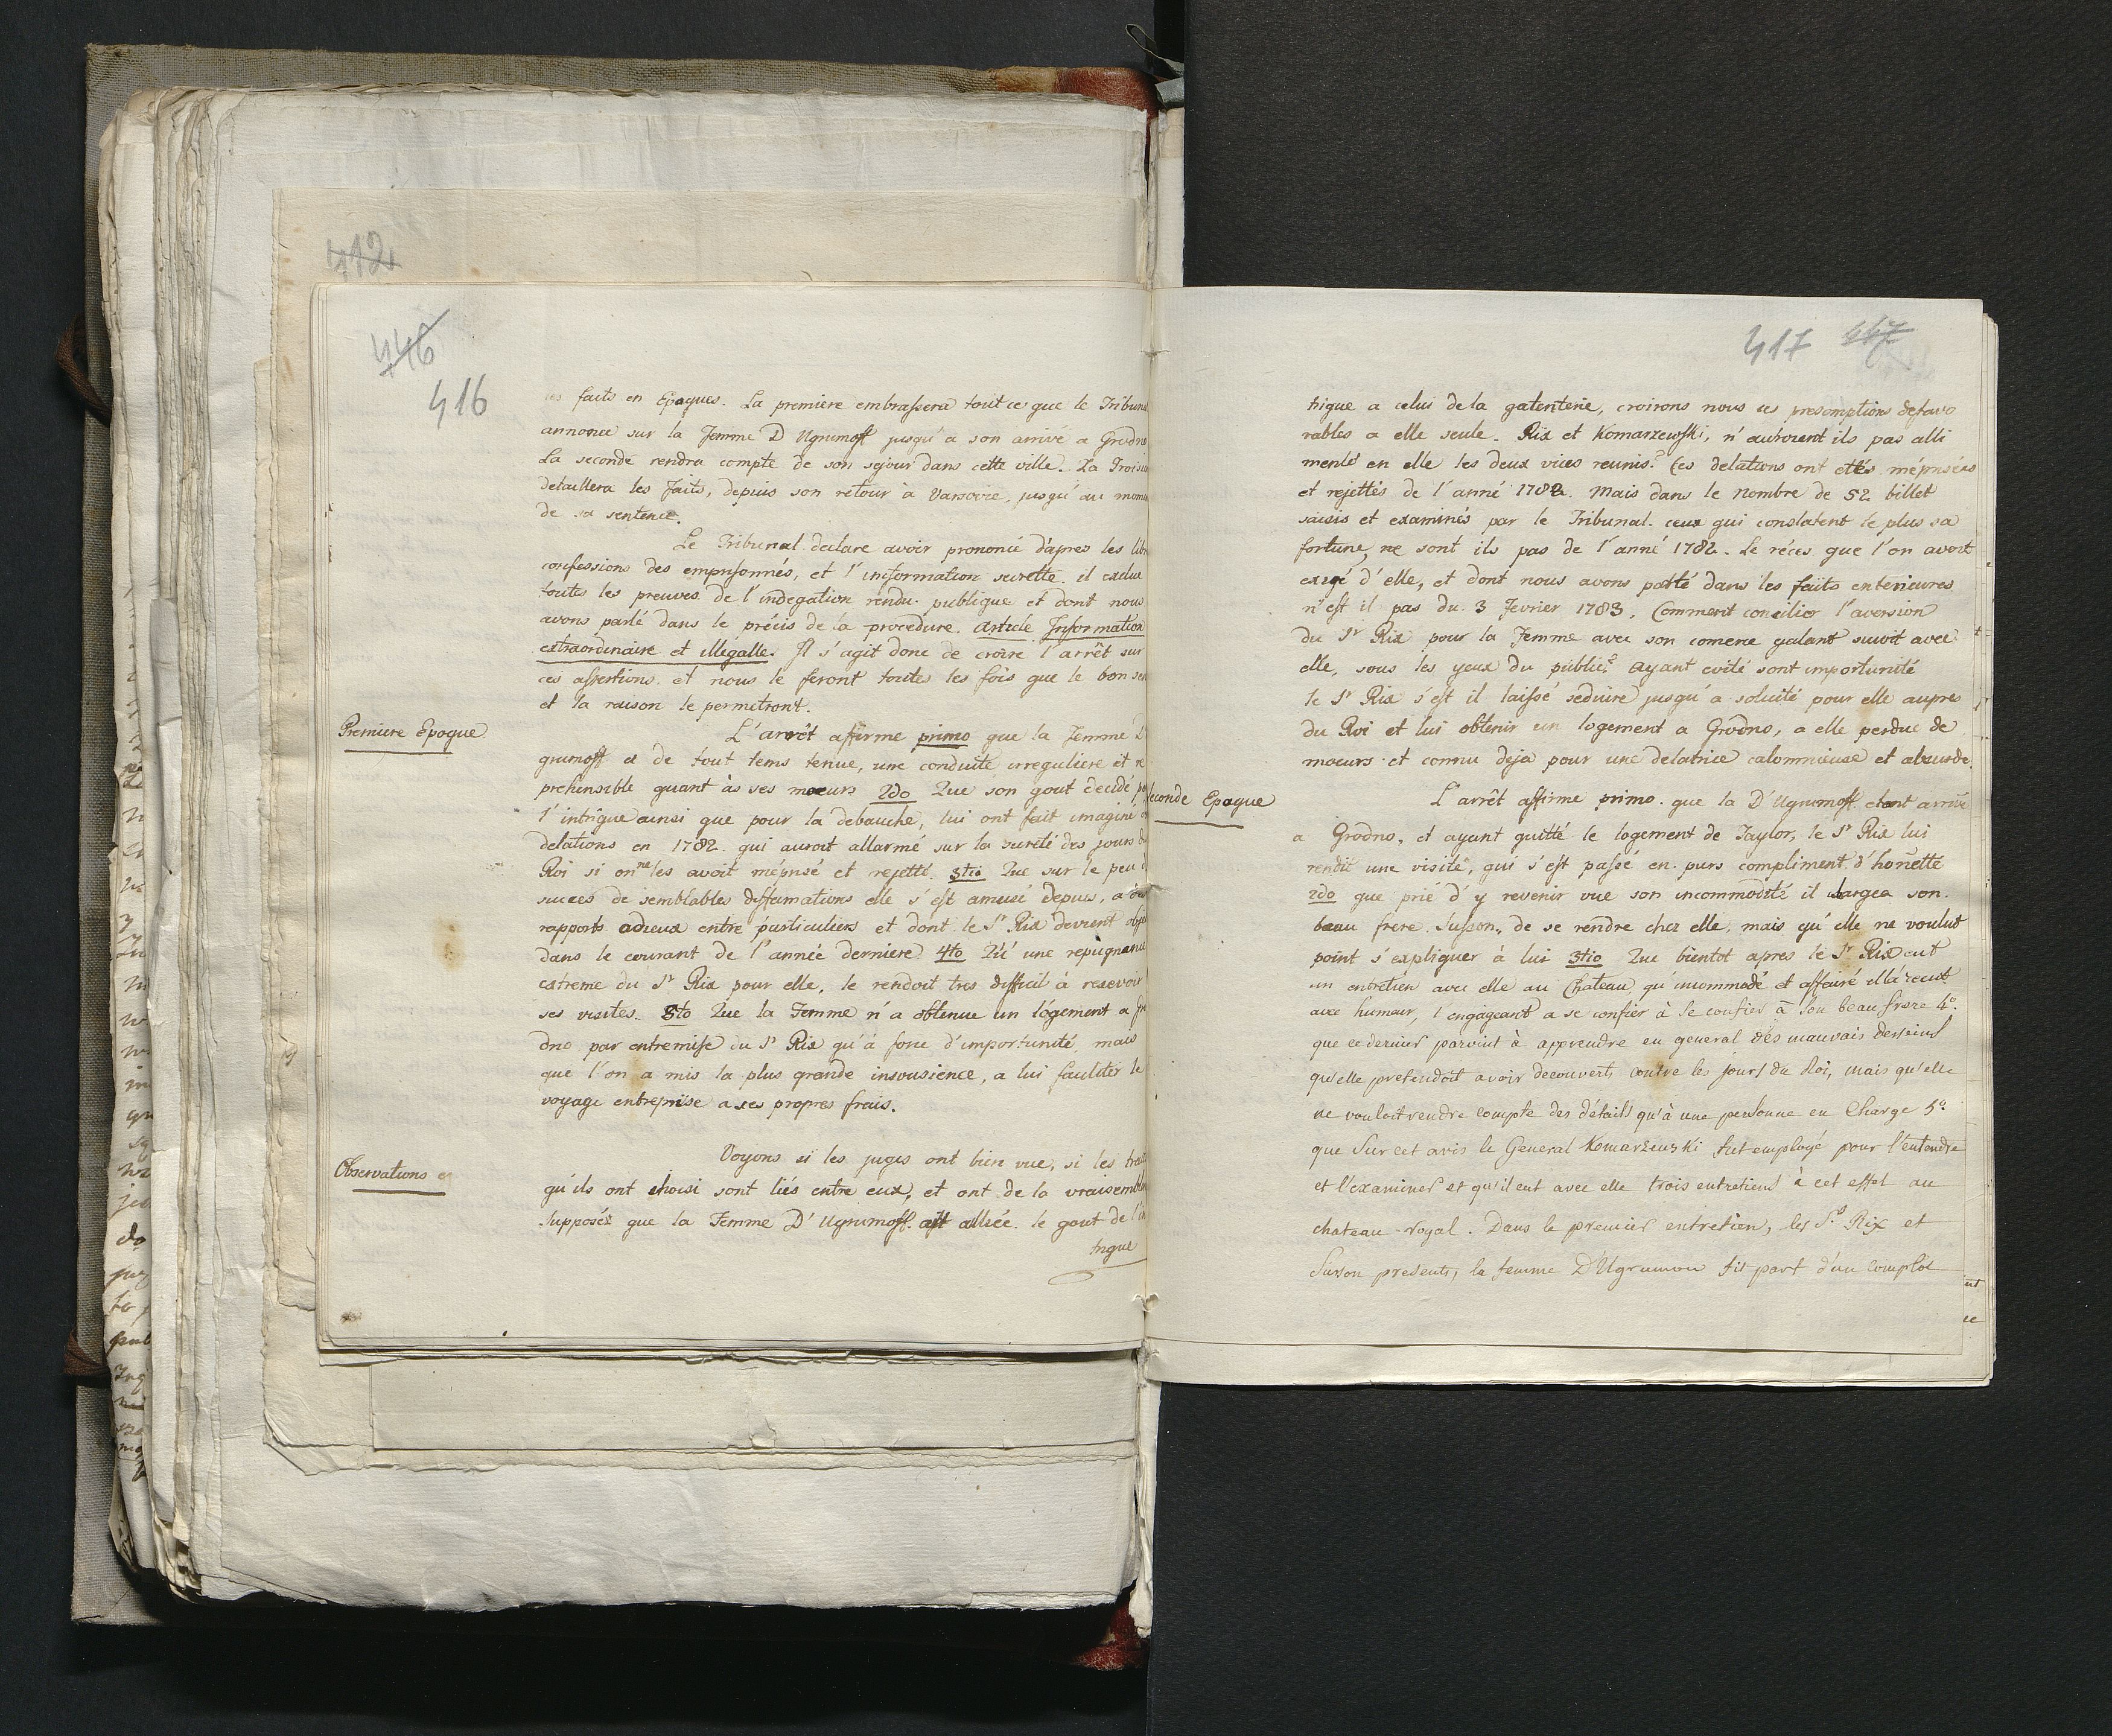 412
446
416
ces faits en Epoques. La premiere embrassera tout ce que le Tribun
annonce sur la Femme D'Ugrumoff jusqu'a son arrivé a Grodno
La seconde rendra compte de son sejour dans cette ville. La Troisie
detaillera les Faits, depuis son retour à Varsovie, jusqu'au mome
de sa sentence.
Le Tribunal declare avoir prononcé d'apres les libr
confessions des emprisonnés, et l'information secrette. il exclue
toutes les preuves de l'indegation rendu publique et dont nous
avons parlé dans le précis de la procedure. Article Information
extraordinaire et illégalle. Il s'agit donc de croire l'arrêt sur
ces assertions. et nous le feront toutes les fois que le bon sen
et la raison le permetront.
Premiere Epoque
L'arrêt affirme primo que la Femme D'
grumoff a de tout tems tenue, une conduite irreguliere et re
prehensible quant às ses moeurs 2do Que son gout decidé po
l'intrigue ainsi que pour la debauche, lui ont fait imaginé
delations en 1782. qui auroit allarmé sur la sureté des jours du
Roi si on ne les avoit méprisé et rejetté. 3tio Que sur le peu d
succes de semblables diffamations elle s'est amusé depuis, a des
rapports odieux entre particuliers et dont le Sr Rix devient obje
dans le courant de l'année derniere 4to Qu'une repugnance
extreme du Sr Rix pour elle, le rendoit tres difficil à resevoir
ses visites. 5to Que la Femme n'a obtenue un logement a Gro
dno par entremise du Sr Rix qu'à force d'importunité, mais
que l'on a mis la plus grande insousience, a lui faciliter le
voyage entreprise a ses propres frais.
Observations
Voyons si les juges ont bien vue, si les trait
qu'ils ont choisi sont liés entre eux, et ont de la vraisembla
Supposéz que la Femme D'Ugrumoff ait alliée le gout de l'in
trigue
417 447
trigue a celui de la galenterie, croirons nous ces presomptions defavo
rables a elle seule. Rix et Komarzewski, n'auroient ils pas alli
mentés en elle les deux vices reunis? Ces delations ont etés méprisées
et rejettés de l'anné 1782. Mais dans le nombre de 52 billet
saisis et examinés par le Tribunal. ceux qui constatent le plus sa
fortune, ne sont ils pas de l'anné 1782. Le réces que l'on avoit
exigé d'elle, et dont nous avons parlé dans les faits enterieures
n'est il pas du 3 Fevrier 1783. Comment concilier l'aversion
du Sr Rix pour la Femme avec son comerce galant suivit avec
elle, sous les yeux du public? Ayant evité sont importunité
le Sr Rix s'est il laissé seduire jusqu'a solicité pour elle aupres
du Roi et lui obtenir un logement a Grodno, a elle perdue de
moeurs et connu deja pour une delatrice calomnieuse et absurde.
Seconde Epoque
L'arrêt affirme primo. que la D'Ugrumoff etant arrivé
a Grodno, et ayant quitté le logement de Taylor, le Sr Rix lui
rendit une visite, qui s'est passé en purs compliment d'honetté
2do que prié d'y revenir vue son incommodité il chargea son
beau frere Susson, de se rendre chez elle, mais qu'elle ne voulut
point s'expliquer à lui 3tio Que bientot apres le Sr Rix eut
un entretien avec elle au Chateau qu'incommodé et affairé il la recut
avec humeur, l'engageant a se confier à se confier à son beau frere 4o.
que ce dernier parvint à apprendre en general des mauvais desseins
qu'elle pretendoit avoir decouverts contre les jours du Roi, mais qu'elle
ne vouloit rendre compte des détails qu'à une personne en Charge 5o.
que Sur cet avis le General Komarzewski fut employé pour l'entendre
et l'examiner et qu'il eut avec elle trois entretiens à cet effet au
chateau-royal. Dans le premier entretien, les Srs Rix et
Susson presents, la femme D'Ugrumow fit part d'un complot